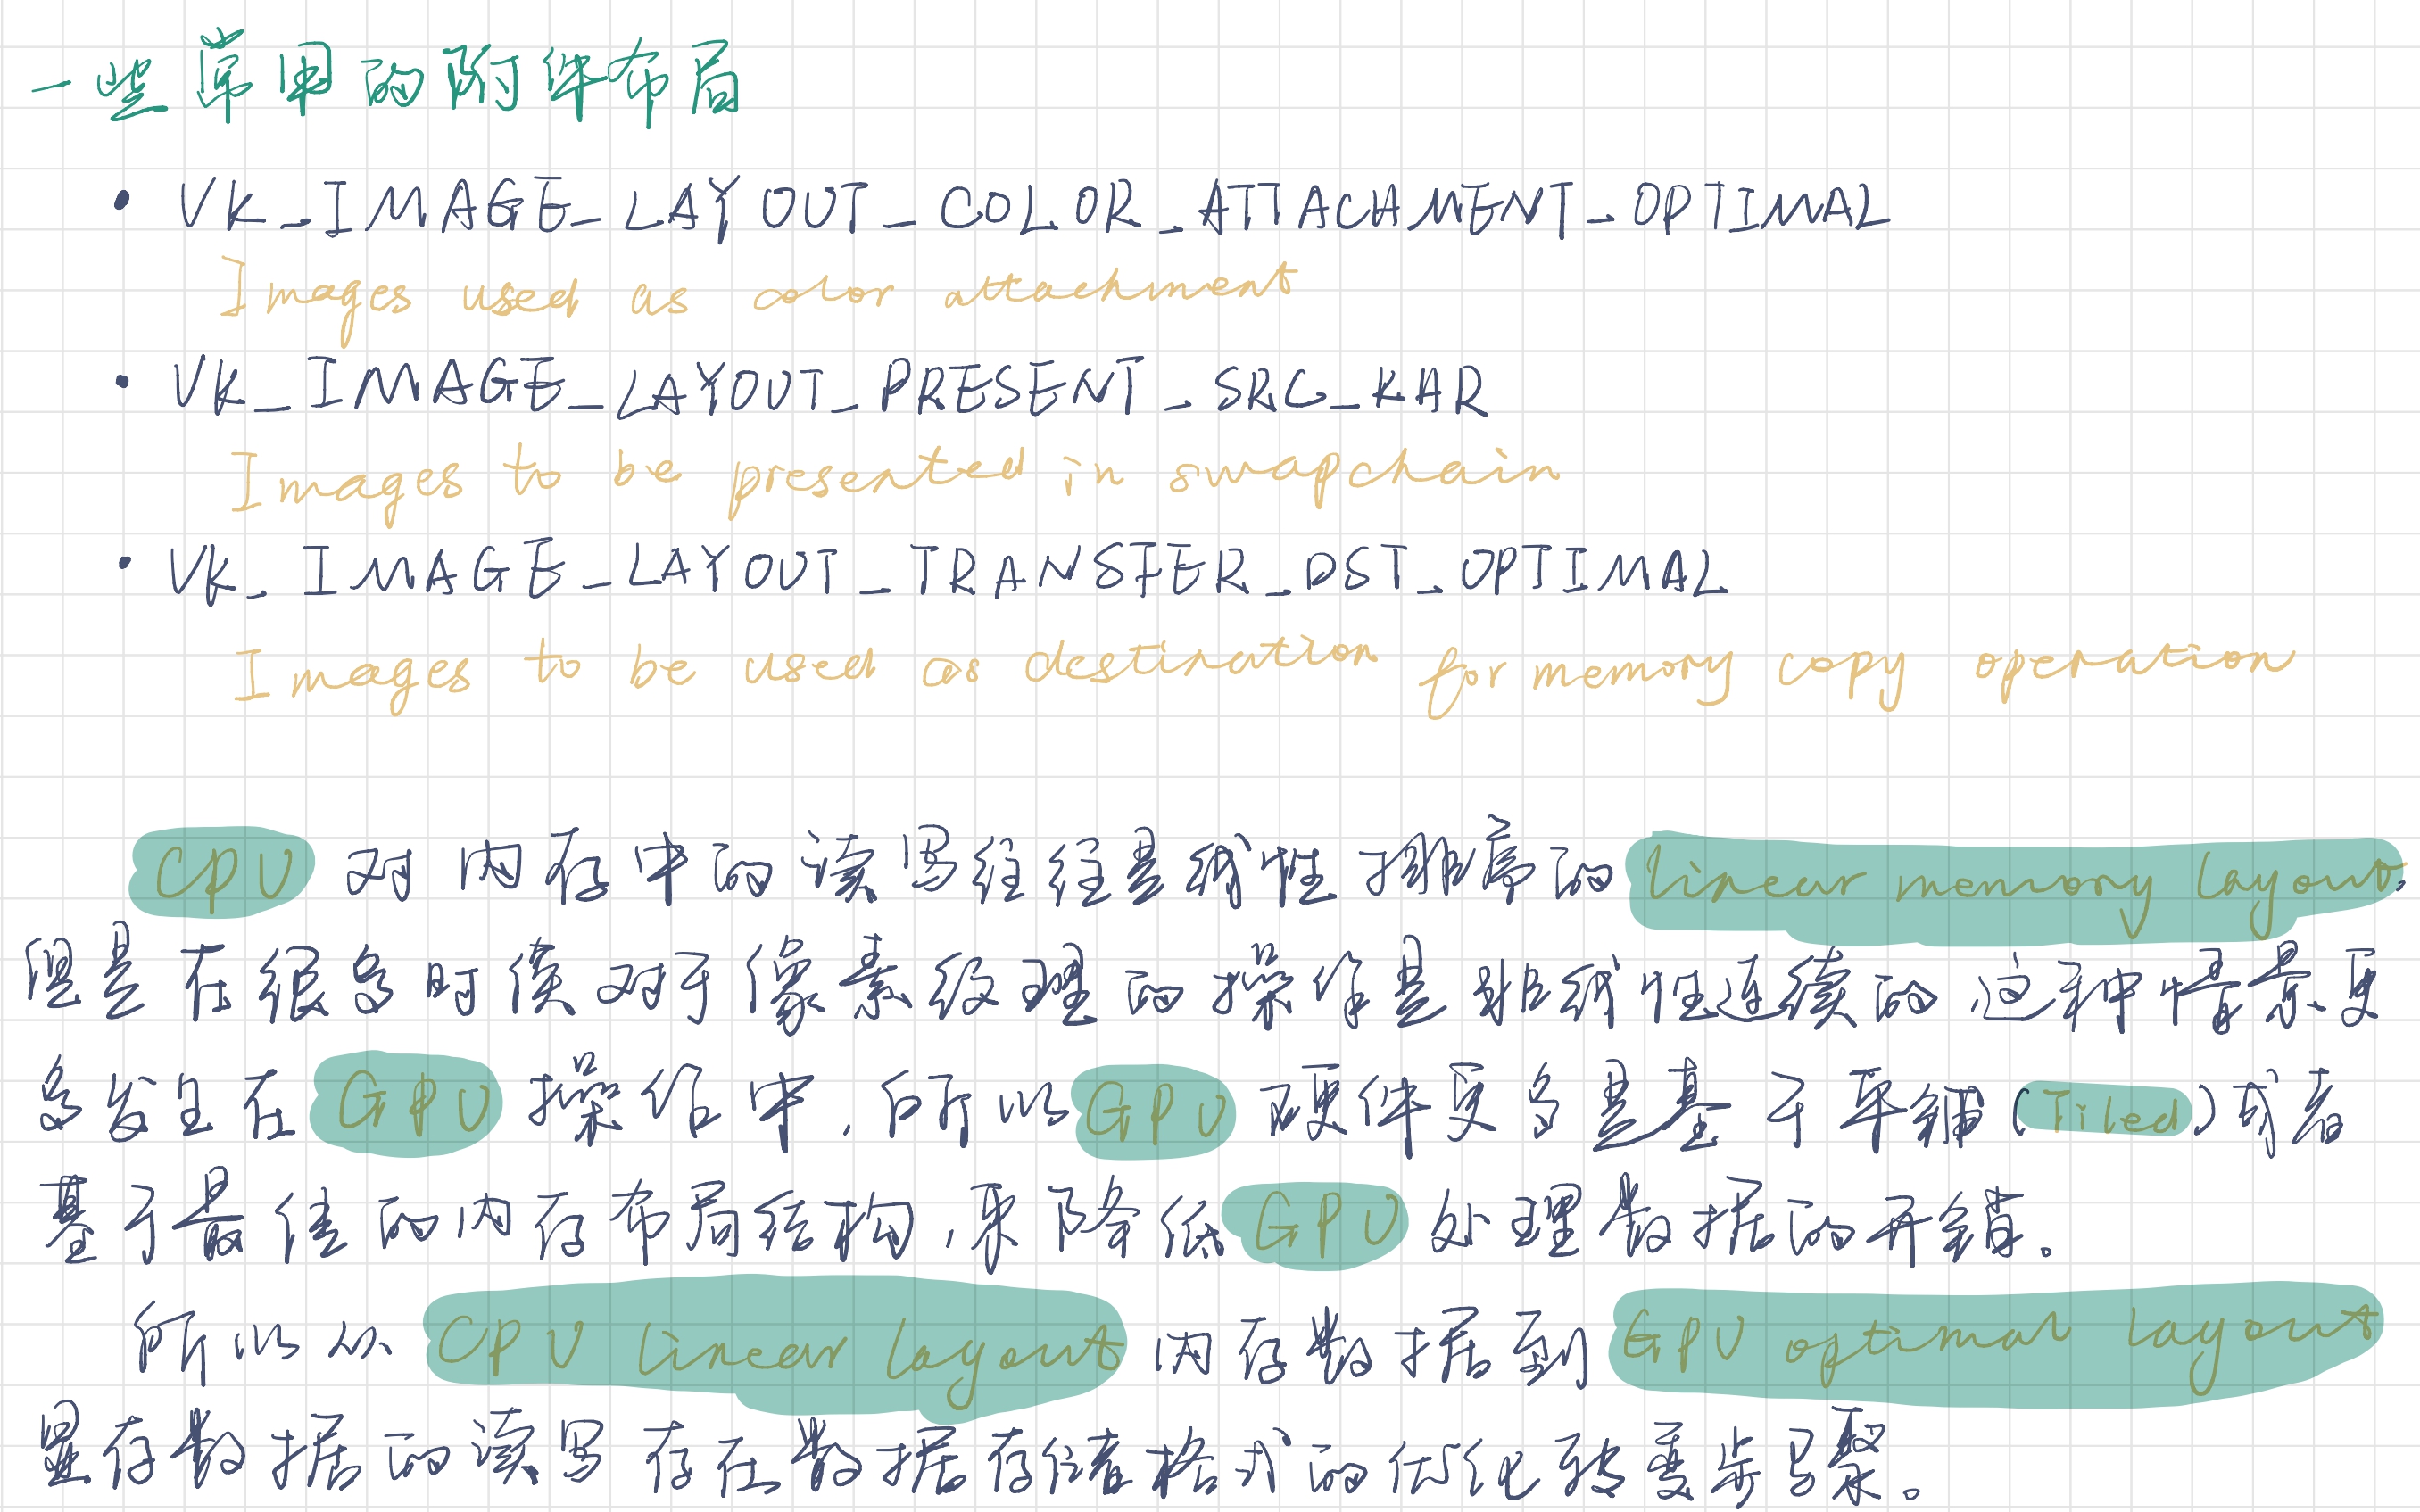 一些常用的附件布局
• VK_IMAGE_LAYOUT_COLOR_ATTACHMENT_OPTIMAL
Images used as color attachment
• VK_IMAGE_LAYOUT_PRESENT_SRC_KHR
Images to be presented in swapchain
• VK_IMAGE_LAYOUT_TRANSFER_DST_OPTIMAL
Images to be used as destination for memory copy operation
CPU 对内存中的读写往往是线性排序的 linear memory layout,
但是在很多时候对于像素纹理的操作是非线性连续的,这种情景更
多发生在 GPU 操作中,所以 GPU 硬件更多是基于平铺(Tiled)或者
基于最佳的内存布局结构,来降低 GPU 处理数据的开销。
所以从 CPU linear layout 内存数据到 GPU optimal layout
显存数据的读写存在数据存储格式的优化转变步骤。